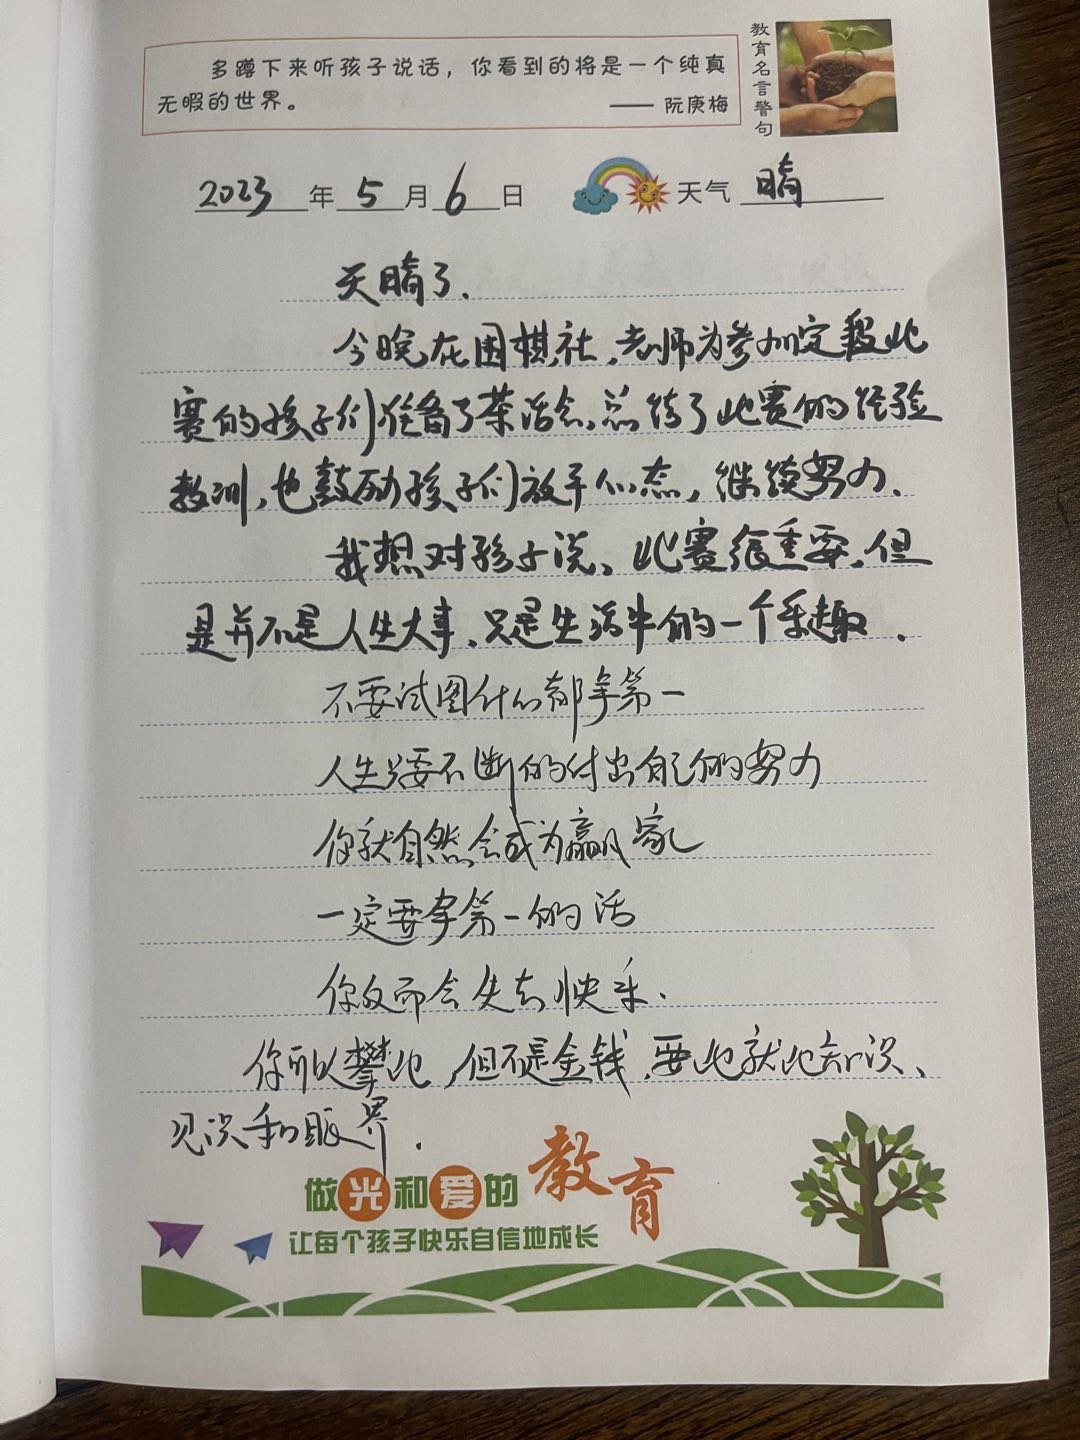 多蹲下来听孩子说话，你看到的将是一个纯真
无暇的世界。
—— 阮庚梅
教育名言警句
2023年5月6日 天气 晴
天晴了.
今晚在围棋社,老师为参加定段比
赛的孩子们准备了茶话会,总结了比赛的经验
教训,也鼓励孩子们放平心态,继续努力.
我想对孩子说、比赛很重要,但
是并不是人生大事,只是生活中的一个乐趣.
不要试图什么都拿第一
人生只要不断的付出自己的努力
你就自然会成为赢家
一定要拿第一的话
你反而会失去快乐.
你可以攀比,但不是金钱,要比就比知识、
见识和眼界.
做光和爱的教育
让每个孩子快乐自信地成长